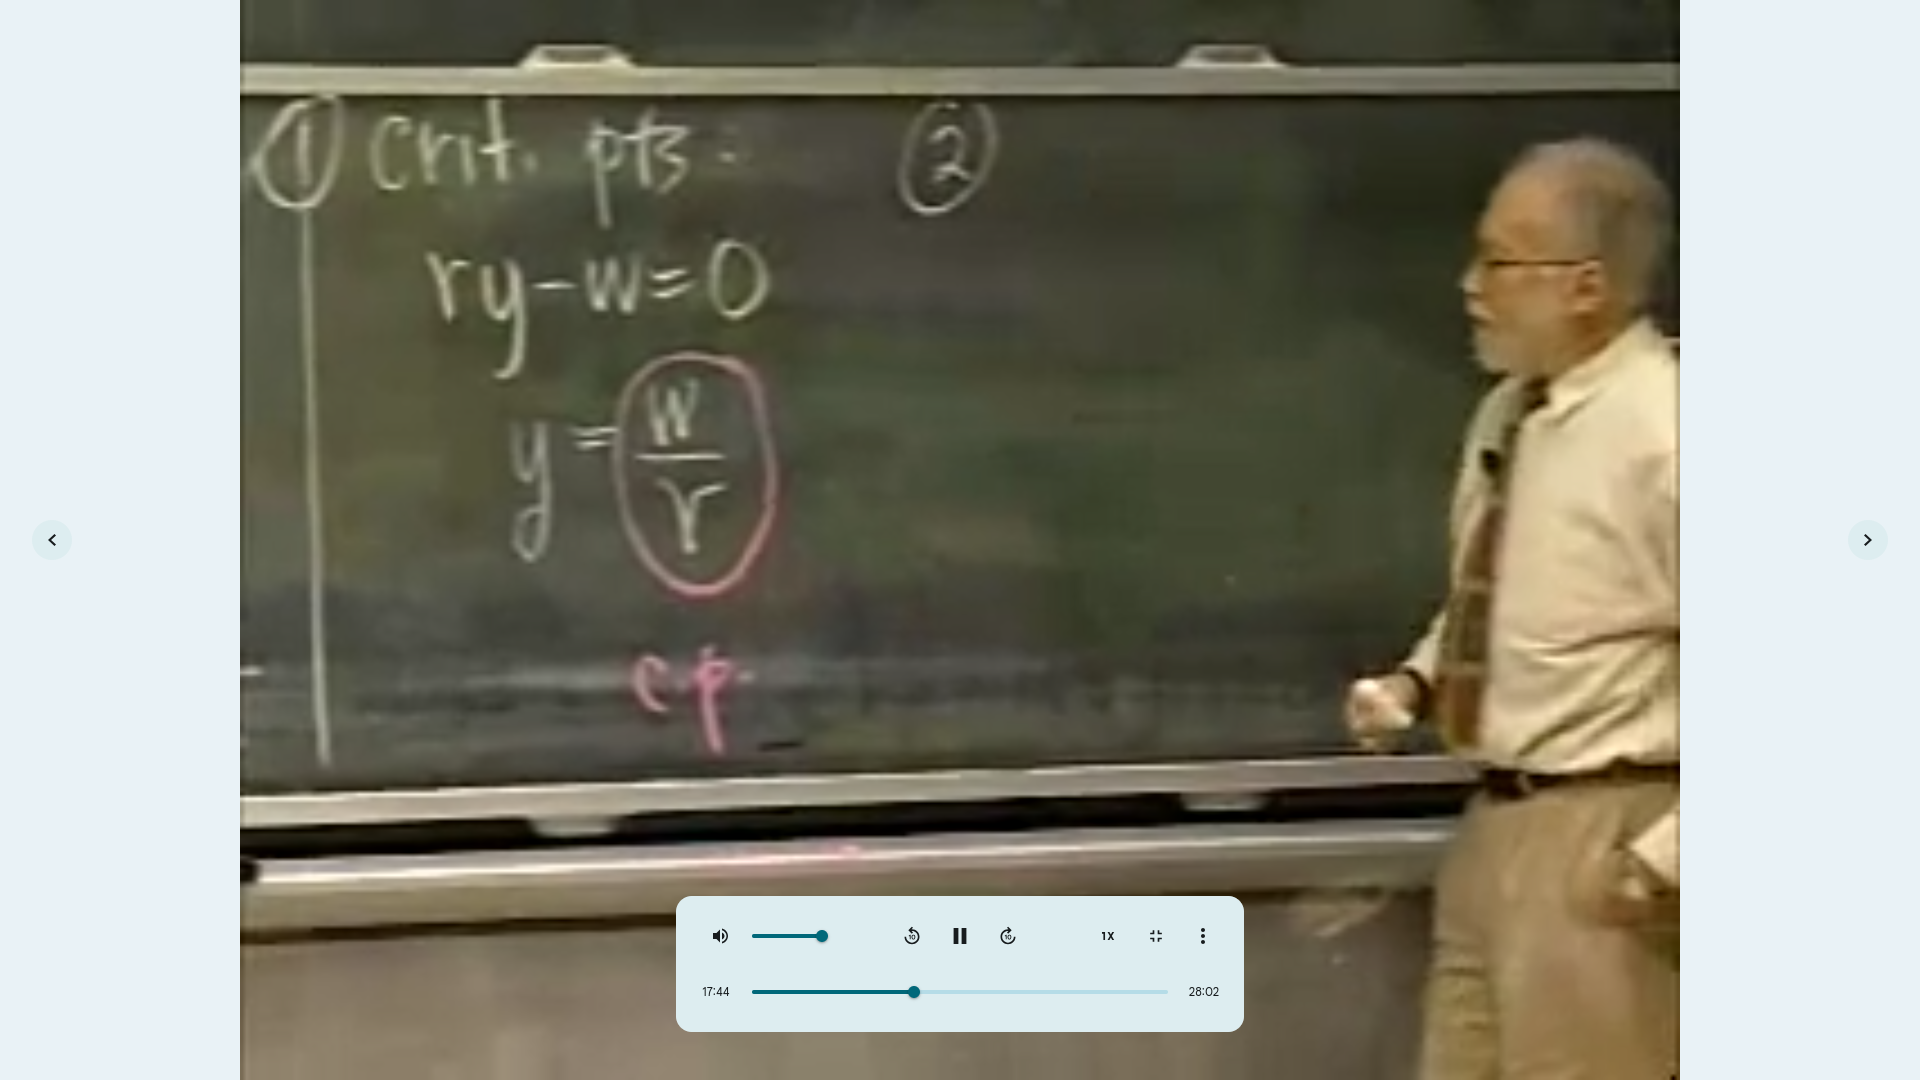 ① Crit. pts. ②
ry-w=0
y = w/r
c.p.
10 10 1X
17:44 28:02